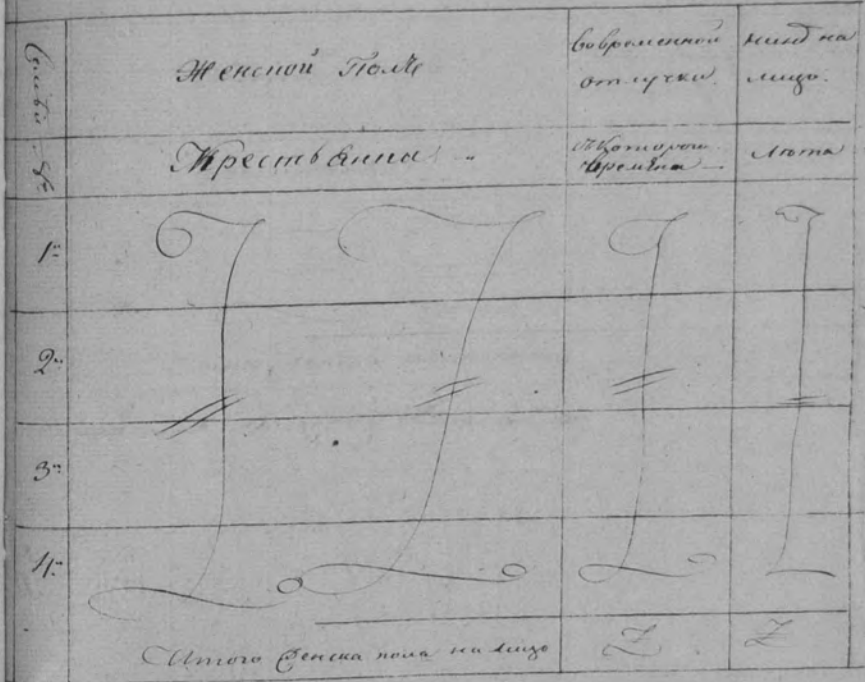 Семьи №
Женской Полъ
Во временной
отлучки
нынѣ на
лицо.
Крестьянна
Съ Котораго
Времяна
Лѣта
1:
2:
3:
4:
Итого Женска пола на лицо